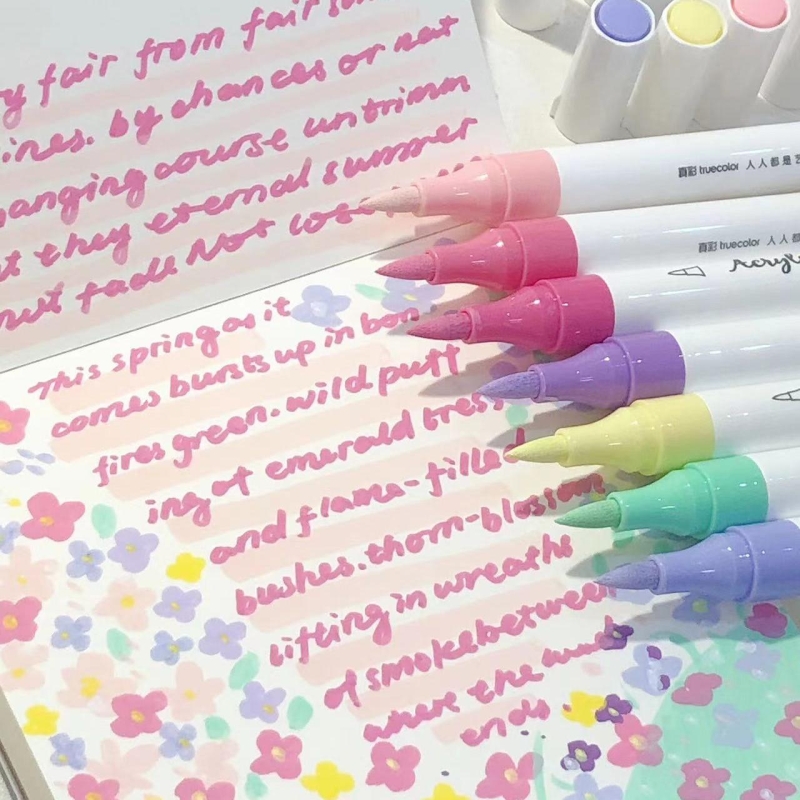 fair from fair
by chances or nat
changing course untrimm
they eternal summer
fade Not lose
This spring as it
comes bursts up in bon
fires green. wild puff
ing of emerald tress
and flame-filled
bushes. thorn-blossom
lifting in wreaths
of smoke between
where the
ends
真彩 truecolor 人人都是
真彩 truecolor 人人都